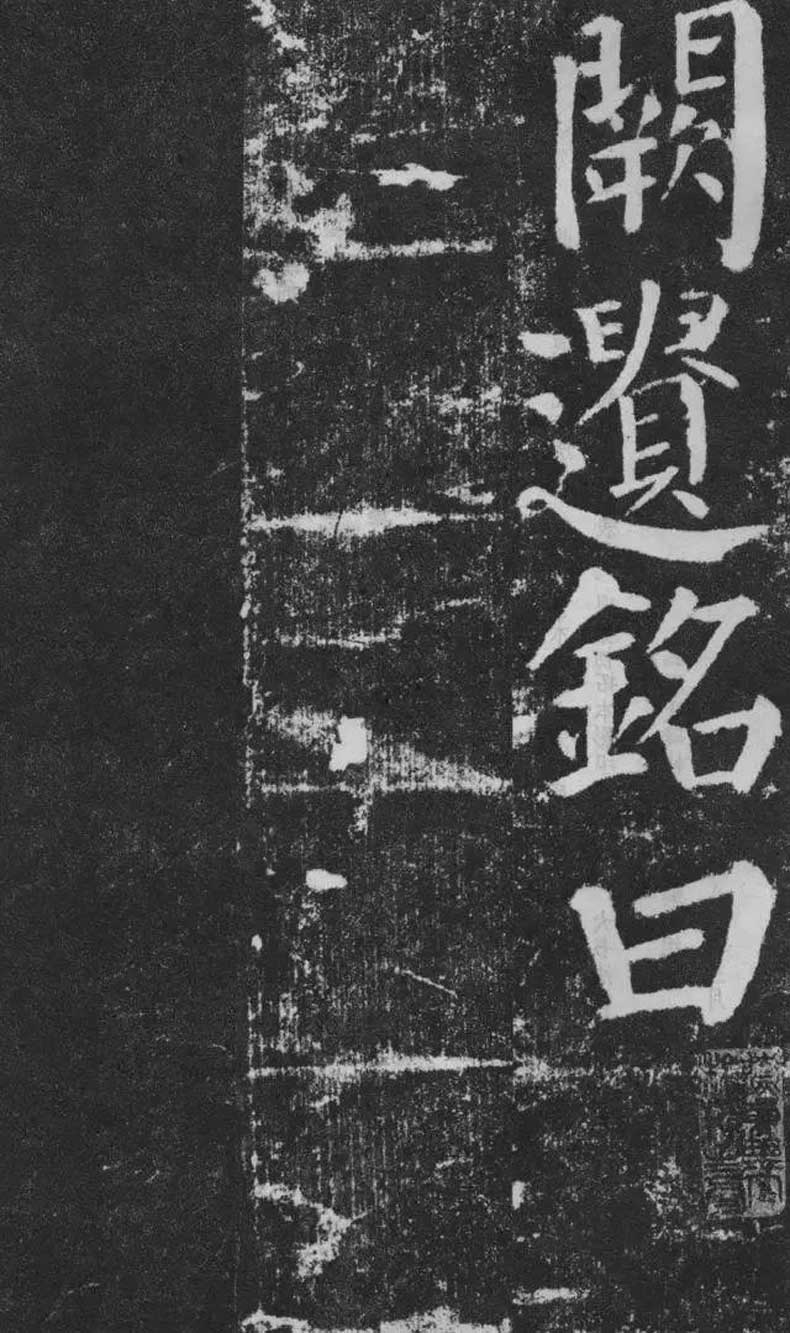 闕遺銘曰